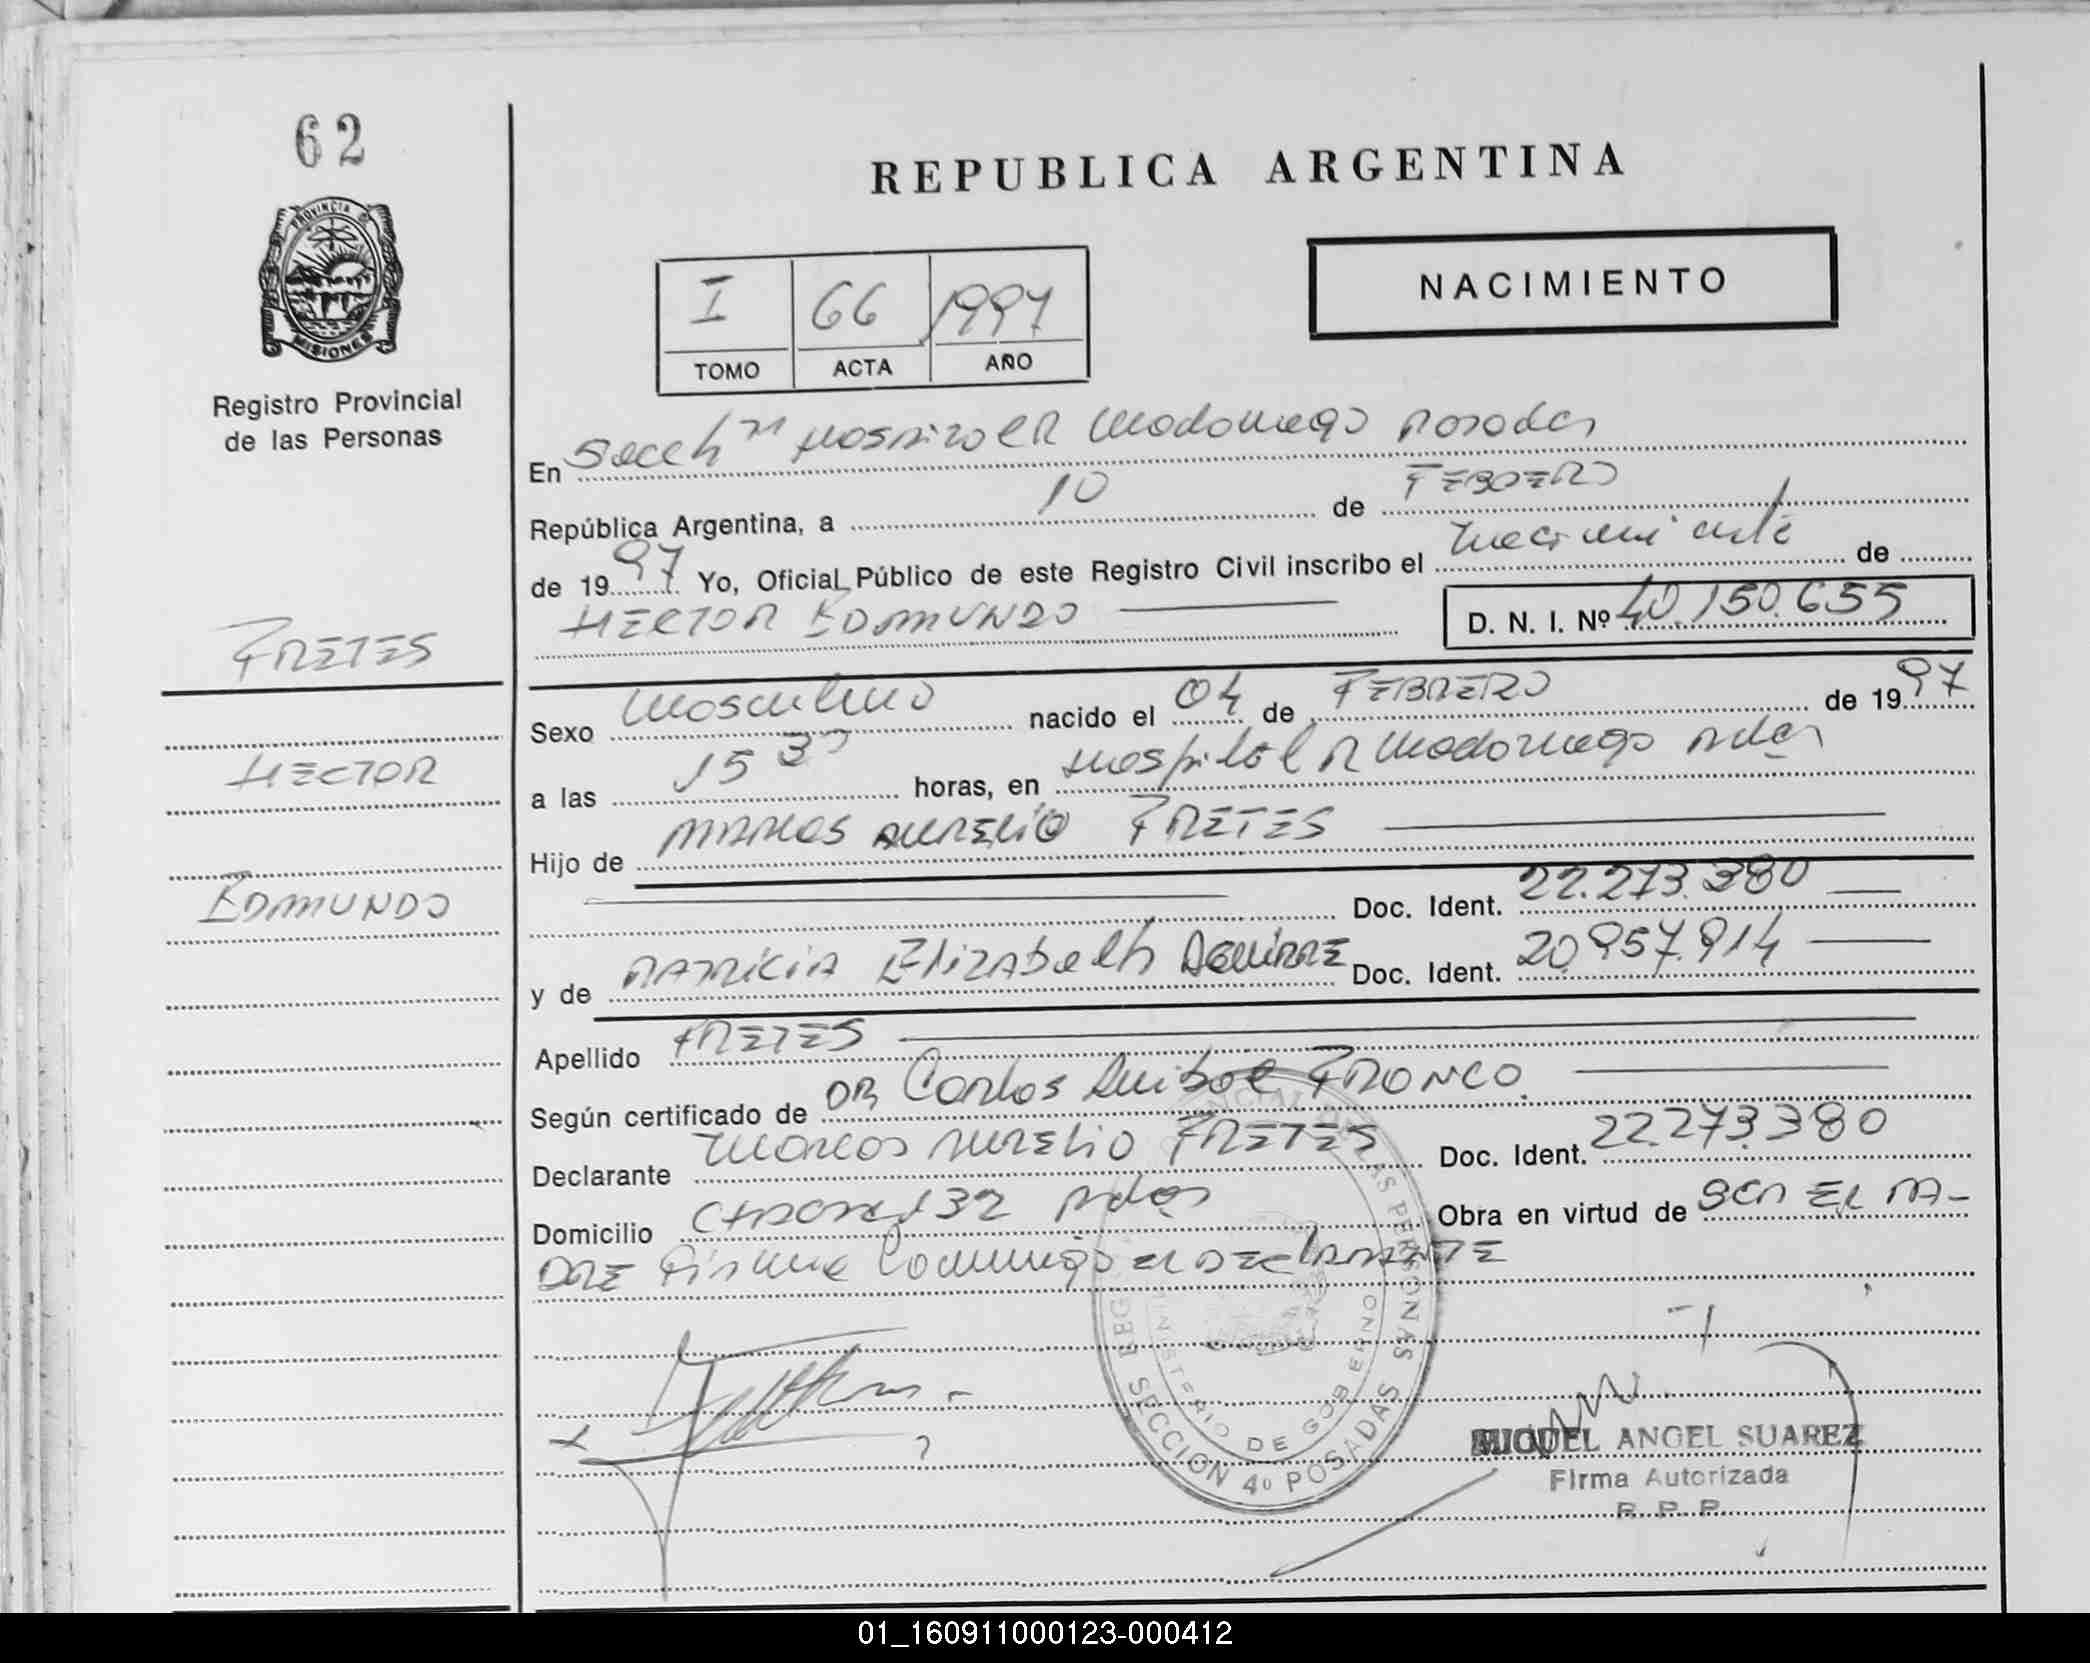 62
PROVINCIA DE
MISIONES
Registro Provincial
de las Personas
REPUBLICA ARGENTINA
NACIMIENTO
I 66 1997
TOMO ACTA AÑO
En Secc 4ta Hospital R Madariaga Posadas
República Argentina, a 10 de FEBRERO
de 1997 Yo, Oficial Público de este Registro Civil inscribo el nacimiento de
HECTOR EDMUNDO D. N. I. Nº 40.150.655
FRETES
HECTOR
EDMUNDO
Sexo Masculino nacido el 04 de FEBRERO de 1997
a las 15 30 horas, en Hospital R Madariaga Pdas
Hijo de MARCOS AURELIO FRETES
Doc. Ident. 22.273.380
y de PATRICIA ElizAbeth AGUIRRE Doc. Ident. 20.957.914
Apellido FRETES
Según certificado de DR Carlos FRANCO
Declarante Marcos AURELIO FRETES Doc. Ident. 22.273.380
Domicilio 132 Pdas Obra en virtud de SER EL PA-
DRE Firma Conmigo el DEClARANTE
REG CIAL DE LAS PERSONAS
MINISTERIO DE GOBIERNO
SECCION 4º POSADAS
MIGUEL ANGEL SUAREZ
Firma Autorizada
R. P. P.
01_160911000123-000412